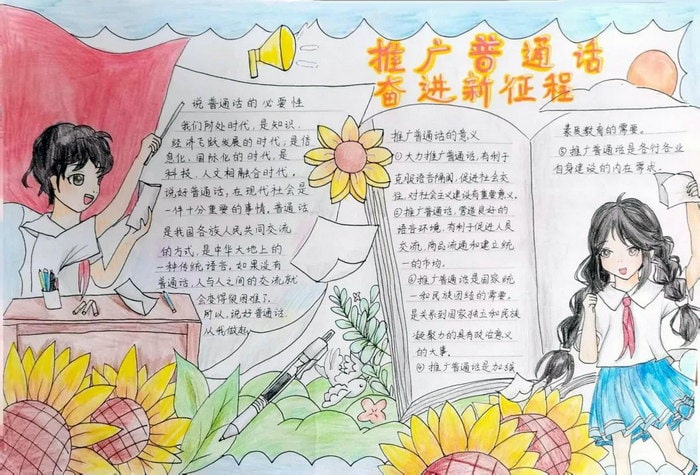 推广普通话
奋进新征程
说普通话的必要性
我们所处时代，是知识
经济飞跃发展的时代，是信
息化，国际化的时代，是
科技，人文相融合时代，
说好普通话，在现代社会是
一件十分重要的事情，普通话
是我国各族人民共同交流
的方式，是中华大地上的
一种传统语言，如果没有
普通话，人与人之间的交流就
会变得很困难了。
所以，说好普通话，
从我做起
推广普通话的意义
①大力推广普通话，有利于
克服语言隔阂，促进社会交
往，对社会主义建设有重要意义。
②推广普通话，营造良好的
语言环境，有利于促进人员
交流，商品流通和建立统
一的市场。
③推广普通话是国家统
一和民族团结的需要。
是关系到国家独立和民族
凝聚力的具有政治意义
的大事。
④推广普通话是加强
素质教育的需要。
⑤推广普通话是各行各业
自身建设的内在需求。